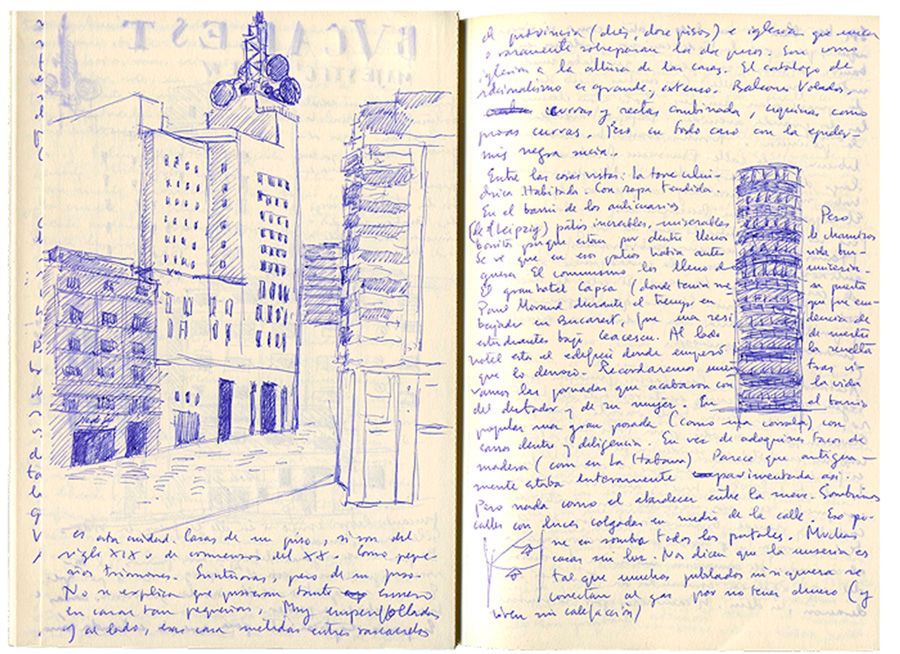 BVCAREST
MAJESTIC
es esta ciudad. Casas de un piso, si son del
siglo XIX o de comienzos del XX. Como peque-
ños trianones. Suntuosas, pero de un piso.
No se explica que pusieran tanto esmero
en casas tan pequeñas. Muy emperifolladas
y al lado, esas casas metidas entre rascacielos
de provincia (diez, doce pisos) e iglesias que nunca
o raramente sobrepasan los dos pisos. Son como
iglesias a la altura de las casas. El catálogo de
racionalismo es grande, extenso. Balcones volados,
curvas y rectas combinadas, esquinas como
proas curvas. Pero en todo caso con la epider-
mis negra sucia.
Entre las cosas vistas: la torre cilín-
drica habitada. Con ropa tendida.
En el barrio de los anticuarios
(de Leipzig) patios increíbles, miserables
bonitos porque están por dentro llenos
Se ve que en esos patios había antes
guesa. El comunismo los llenó de
El gran hotel Capsa (donde tenía
Paul Morand durante el tiempo en
bajador en Bucarest, fue una resi
estudiantes bajo Ceacescu. Al lado
hotel está el edificio donde empezó
que lo derrocó. Recordaremos
vamos las jornadas que acabaron con
del dictador y de su mujer. En
Pero
de chamizos
vida bur-
miseria.
su puesto
que fue em-
dencia de
de nuestro
la revuelta
tras vi
la vida
el barrio
popular una gran posada (como una corrala) con
carros dentro y diligencia. En vez de adoquines tacos de
madera (como en La Habana). Parece que antigua-
mente estaba enteramente pavimentada así.
Pero nada como el atardecer entre la nieve. Sombrías
calles con luces colgadas en medio de la calle. Eso po-
ne en sombra todos los portales. Muchas
casas sin luz. Nos dicen que la miseria es
tal que muchos jubilados ni siquiera se
conectan al gas por no tener dinero (y
viven sin calefacción)